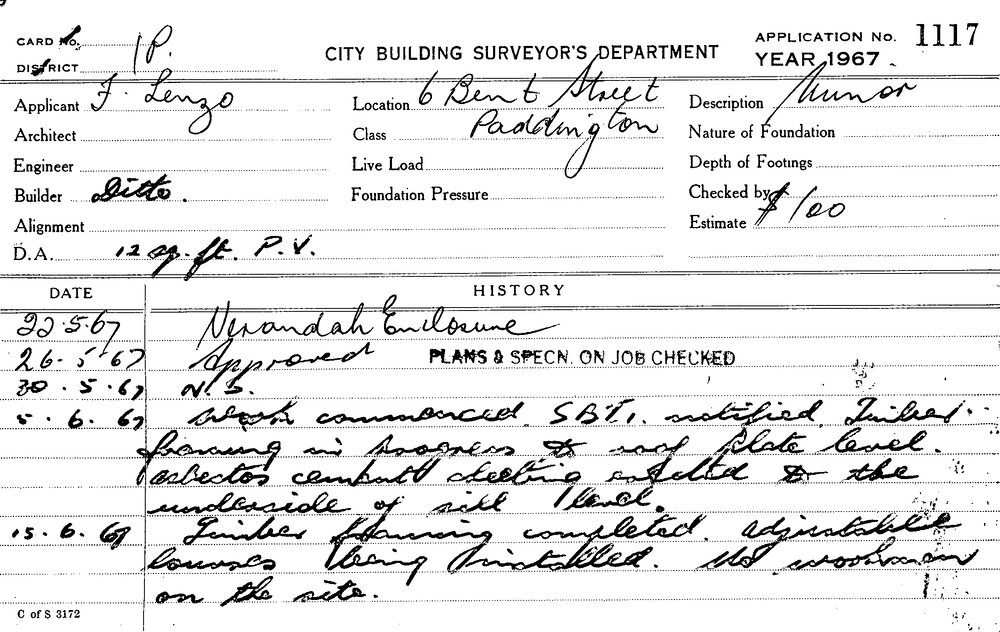 CARD No. 1P.
DISTRICT
CITY BUILDING SURVEYOR'S DEPARTMENT
APPLICATION No. 1117
YEAR 1967
Applicant F. Lenzo
Location 6 Bent Street
Paddington
Description Minor
Architect
Class
Nature of Foundation
Engineer
Live Load
Depth of Footings
Builder Ditto.
Foundation Pressure
Checked by
Alignment
Estimate $100
D.A. 12 sq. ft. P.V.
DATE HISTORY
22.5.67 Verandah Enclosure
26.5.67 Approved PLANS & SPECN. ON JOB CHECKED
30.5.67 N.S.
5.6.67 Work commenced. S.B.I. notified. Timber
framing in progress to roof plate level.
asbestos cement sheeting erected to the
underside of sill level.
15.6.67 Timber framing completed. adjustable
louvres being installed. No workmen
on the site.
C of S 3172